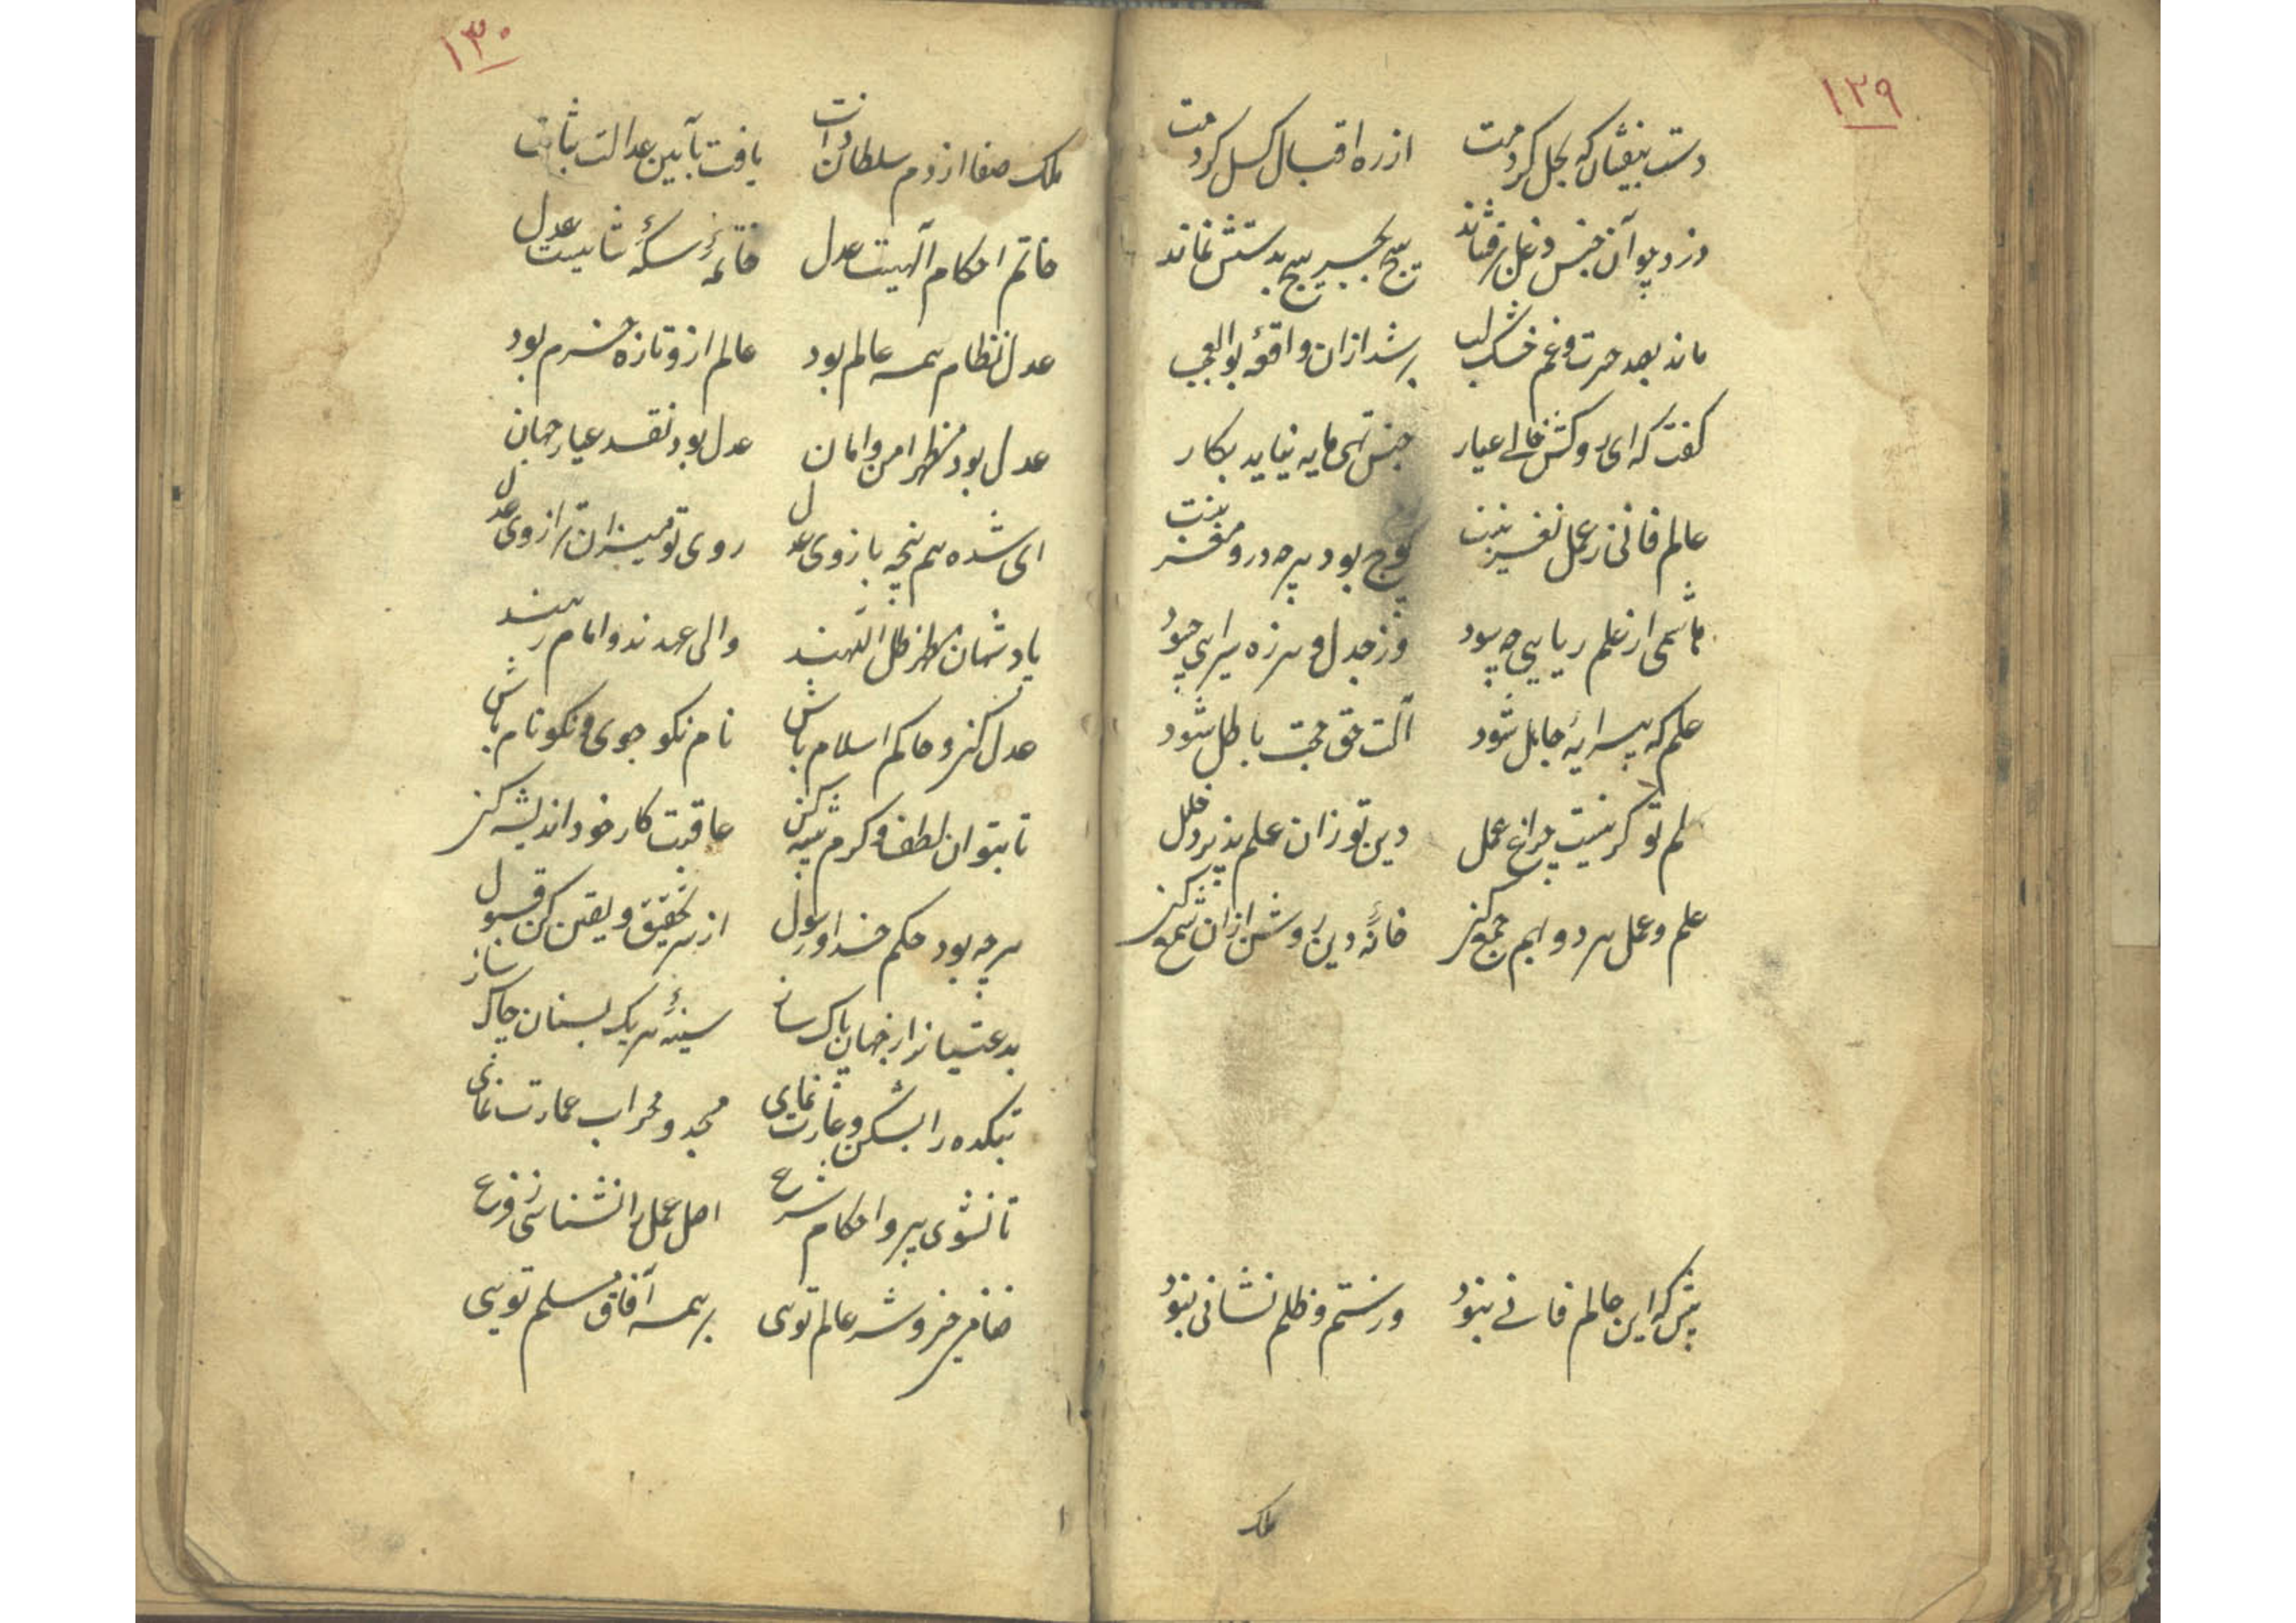 ۱۲۹
دست بیفشان که بخل کردمت از ره اقبال کسل کردمت
دزد چو آن جنس دغل برفشاند هیچ بجز هیچ بدستش نماند
ماند بصد حسرت و غم خشک لب بر شد ازان واقعهٔ بوالعجب
کفت که ای روکش خالی عیار جنس تهی مایه نیاید بکار
عالم فانی ز عمل نغز نیست پوچ بود هرچه درو مغز نیست
هاشمی از علم ریایی چه سود وز جدل و هرزه سرایی چه سود
علم که پیرایهٔ جاهل شود آلت حق حجت باطل شود
علم تو کر نیست چراغ عمل دین تو زان علم پذیرد خلل
علم و عمل هر دو بهم جمع کن خانهٔ دین روشن ازان شمع کن
پیش که این عالم فانی نبود ور ستم و ظلم نشانی نبود
ملک
۱۳۰
ملک صفا از دم سلطان ذات یافت بآیین عدالت ثبات
خاتم احکام آلهیست عدل خاتمهٔ سکهٔ شاهیست عدل
عدل نظام همه عالم بود عالم ازو تازه و خرم بود
عدل بود مظهر امن و امان عدل بود نقد عیار جهان
ای شده هم پنجه بازوی عدل روی تو میزان ترازوی عدل
پادشهان مظهر ظل اللهند والی عهدند و امام رهند
عدل کن و حاکم اسلام باش نام نکو جوی و نکو نام باش
تا بتوان لطف و کرم پیشه کن عاقبت کار خود اندیشه کن
هرچه بود حکم خدا و رسول از سر تحقیق و یقین کن قبول
بدعتیانرا ز جهان پاک ساز سینهٔ هر یک بسنان چاک ساز
بتکده را بشکن و غارت نمای مسجد و محراب عمارت نمای
تا نشوی پیرو احکام شرع اصل عمل را نشناسی ز فرع
ضامن خیر و شر عالم تویی بر همه آفاق مسلم تویی